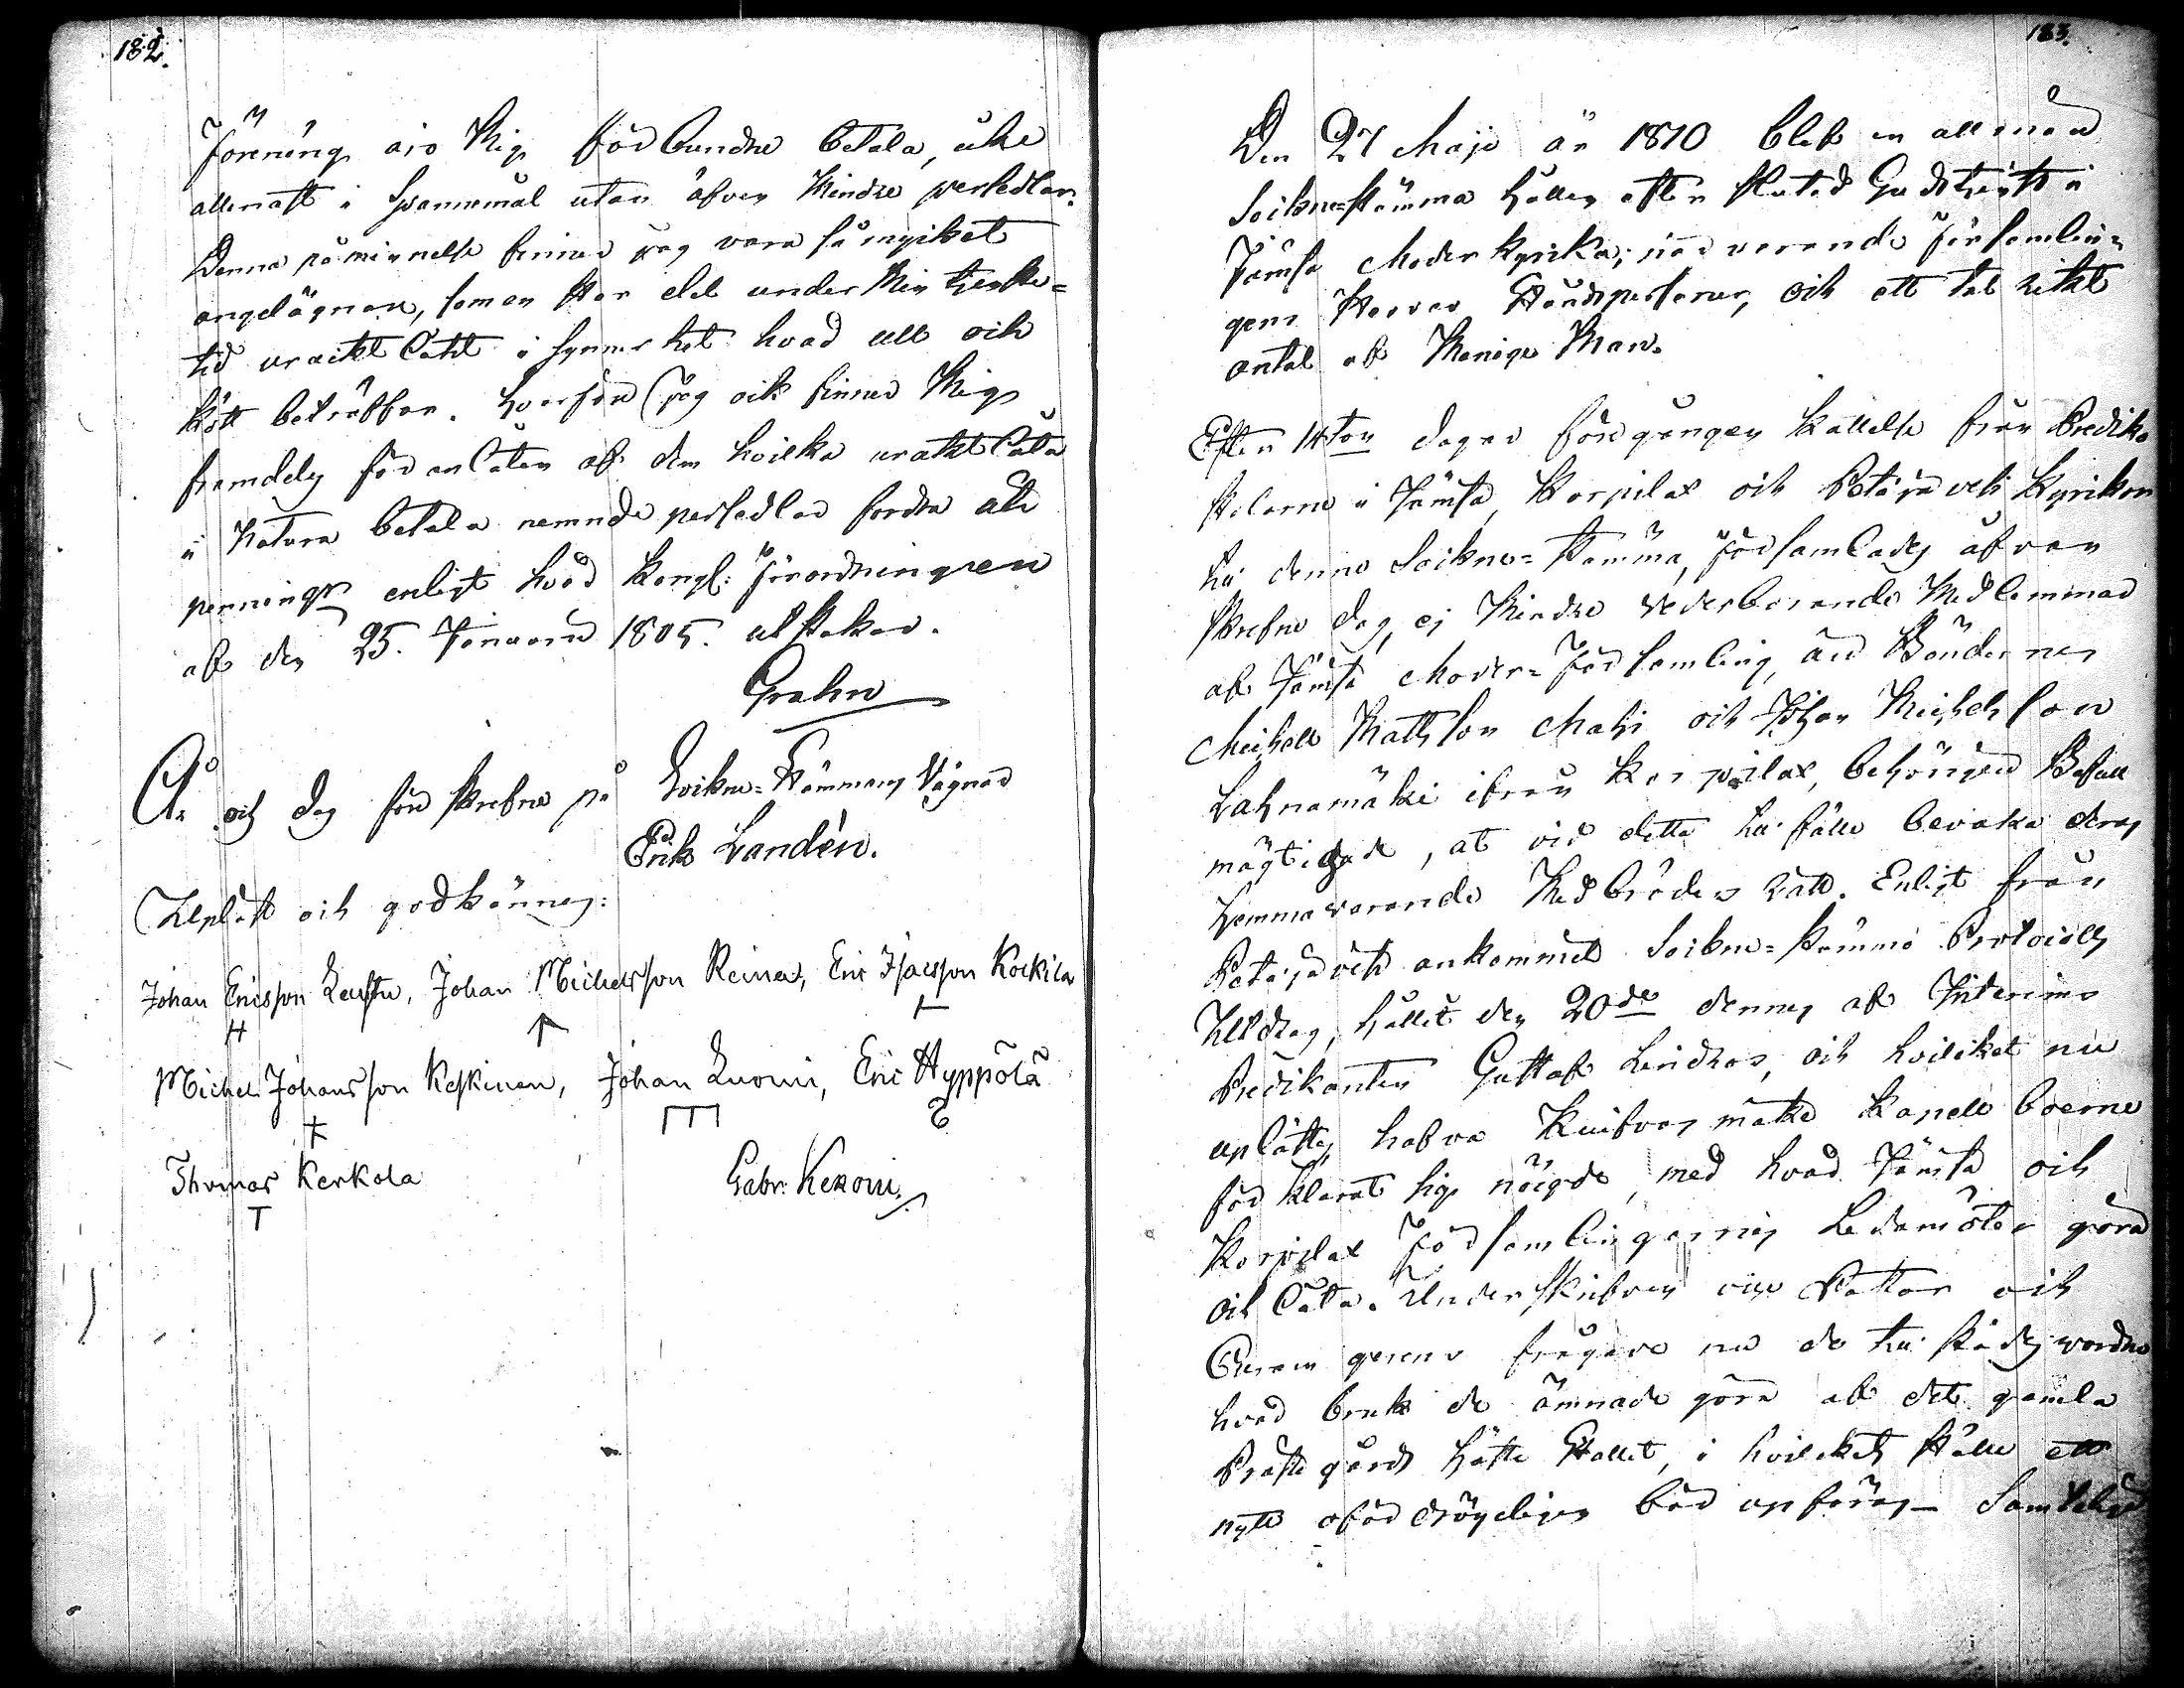 182.
förening äro Mig förbundne betala, icke
allenast i Spannemål utan äfven Mindre persedlar.
Denna påminnelse finner jag vara så mycket
angelägnare, som en stor del under Min tjenste-
tid uracktlåtit i synnerhet hvad ull och
kött beträffar. Hvarföre jag ock finner Mig
framdeles föranlåten af dem hvilka uraktlåta
i Natura betala nemnde persedlar fordra alt
penningar enligt hvad Kongl: Förordningen
af den 25. Januarii 1805. utstakar.
Grahn
År och dag förskrefne på Sockne-Stämmans Vägnar
Erik Landén.
Uplåst och godkännes:
Johan Ericsson Leustu, Johan Michelsson Reinea, Eric Isacsson Kockila
Michel Johansson Keskinen, Johan Luomi, Eric Hyppölä
Thomas Kerkola Gabr: Kexoni.
183.
Den 27 Maji år 1810 blef en allmän
Sockne-Stämma hållen efter slutad Gudstjenst i
Jämsä Moderkyrka, närvarande Församlin-
gens Herrar Ståndspersoner, och ett talrikt
antal af Menige Man.
Efter 14ton dagar föregången kallelse från Predik-
stolarne i Jämsä, Korpilax och Petäjävesi Kyrkor
till denne Sockne-Stämma, församlades ofvan
skrefne dag, ej Mindre vederbörande Medlemmar
af Jämsä Moder-Församling, än Bönderne
Michell Mattsson Mahi och Johan Michelsson
Lahnamäki ifrån Korpilax, behörigen Befull
mägtigade, at vid detta tillfälle bevaka deras
hemmavarande Medbröders rätt. Enligt från
Petäjävesi ankommit Sockne-Stämmo Protocolls
Utdrag, hållit den 20de dennes af Interims
Predikanten Gustaf Lindros, och hvilcket nu
uplästes, hafva Kuifvasmäki Kapellboerne
förklarat sig nögde, med hvad Jämsä och
Korpilax Församlingarnes Ledamöter göra
och låta. Underskrifven vice Pastor och
frågare nu de tillstädes vordne
hvad bruk de ämnade göra af det gamla
Prästegårds Stallet, i hvilckets ställe ett
nytt ofördröyeligen bör upföras. Samtelige